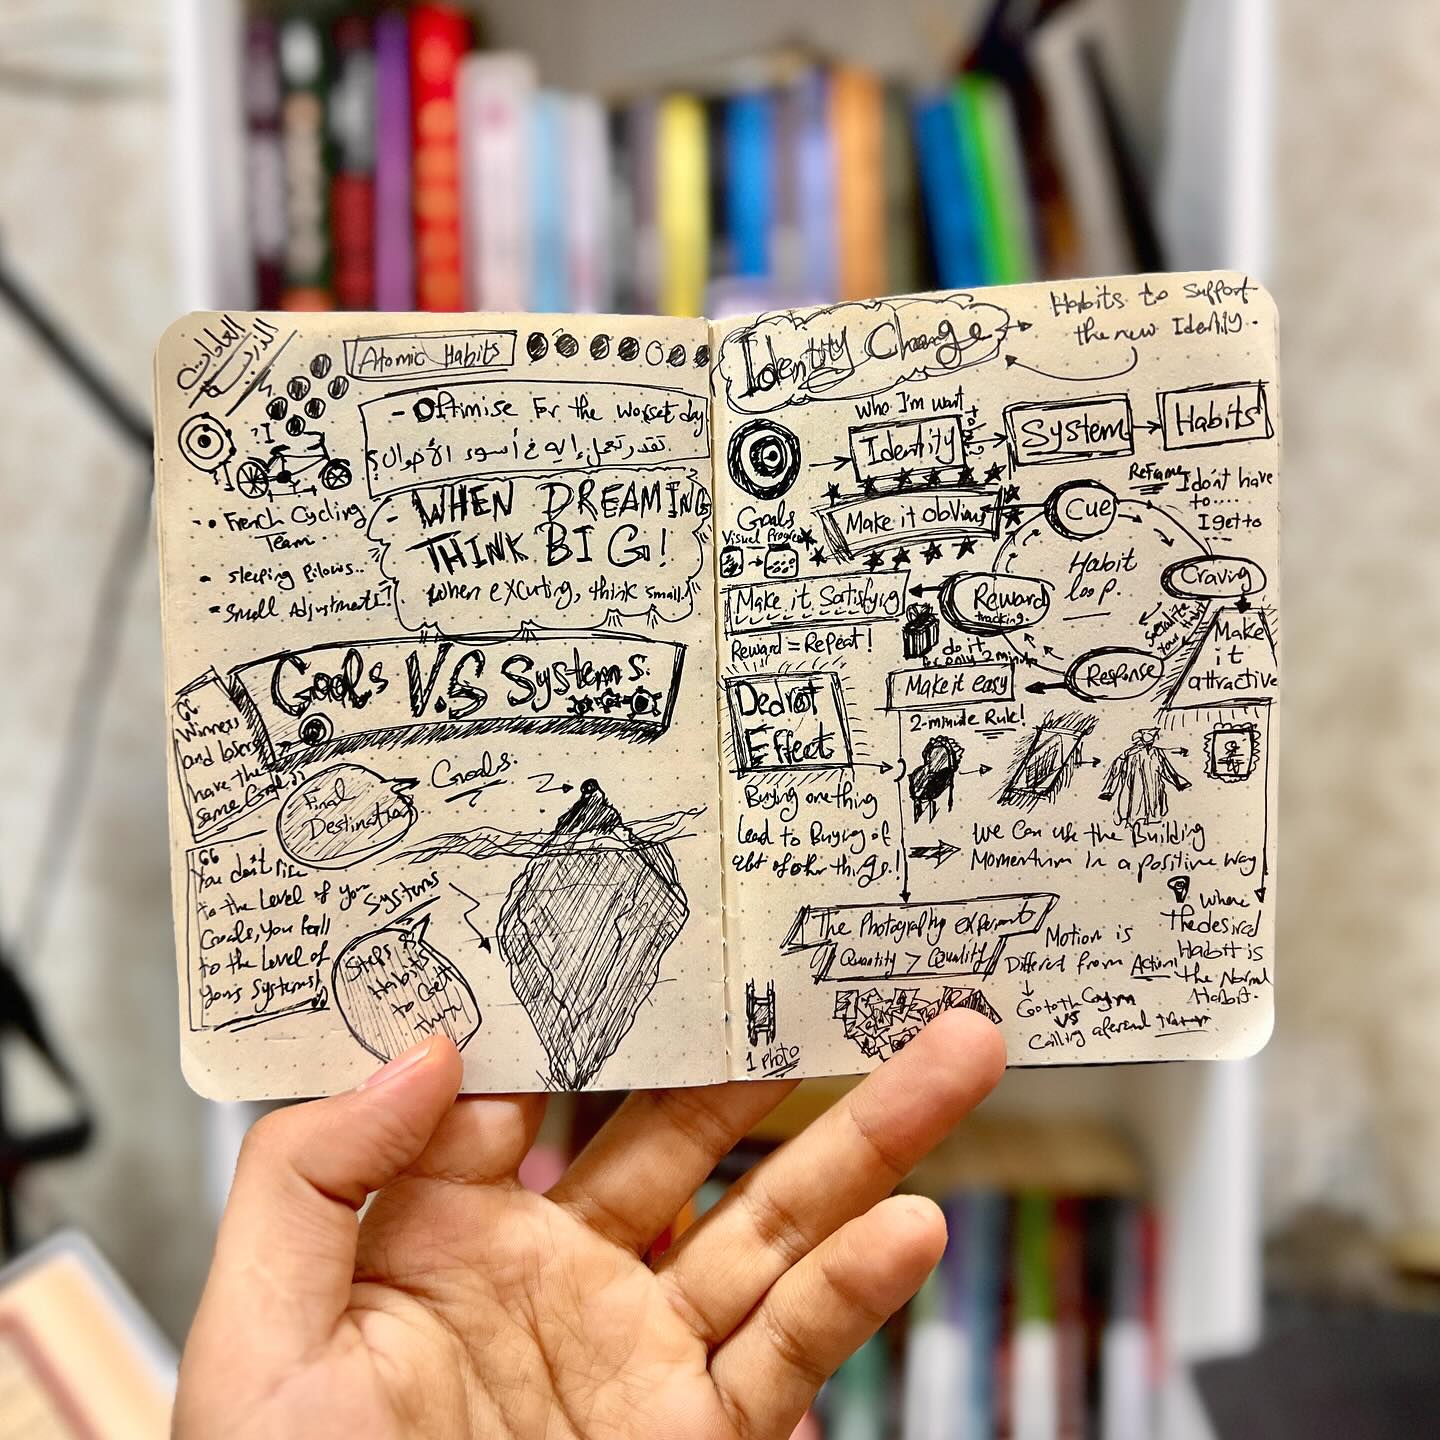 العادات
الذرية
Atomic Habits
- Oftimise For the worset day
تقدر تعمل إيه في أسوء الأحوال؟
- WHEN DREAMING
THINK BIG!
when excuting, think small!
French Cycling
Team..
Sleeping Pilows..
Small Adjustments!
Goals V.S Systems.
“
Winners
and losers
have the
same Goals”
Final
Destination
Goals.
“
You don't rise
to the Level of your
Goals, you fall
to the Level of
your Systems!
Systems
Steps &
Habits
to Get
there
Identity Change
Habits to Support
the new Identity.
who I'm want
to be
Identity
System
Habits
Goals
Make it obvious
Cue
Reframe
I don't have
to....
I get to
...
Visual Progress
Habit
loop.
Craving
Make it Satisfying
Reward
tracking.
Reward = Repeat!
do it
be only 2 minute
Make it easy
Response
your Habit
Make
it
attractive
2-minute Rule!
Dedrot
Effect
Buying one thing
Lead to Buying of
alot of other things.!
We can use the Building
Momentum in a positive way
The Photography experiment
Quantity > Quality
Motion is
Different from Action!
Go to the Gym
VS
Calling a personal trainer
Where
the desired
Habit is
the Normal
Habit.
1 Photo